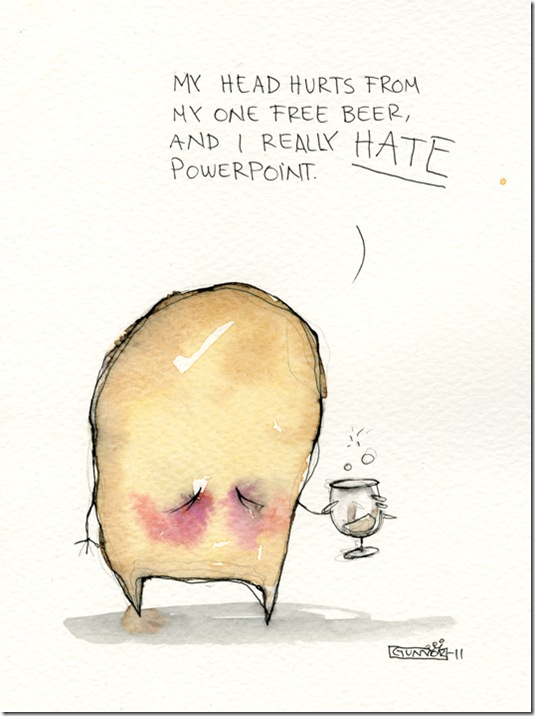 MY HEAD HURTS FROM
MY ONE FREE BEER,
AND I REALLY HATE
POWERPOINT.
GUNVOR -11